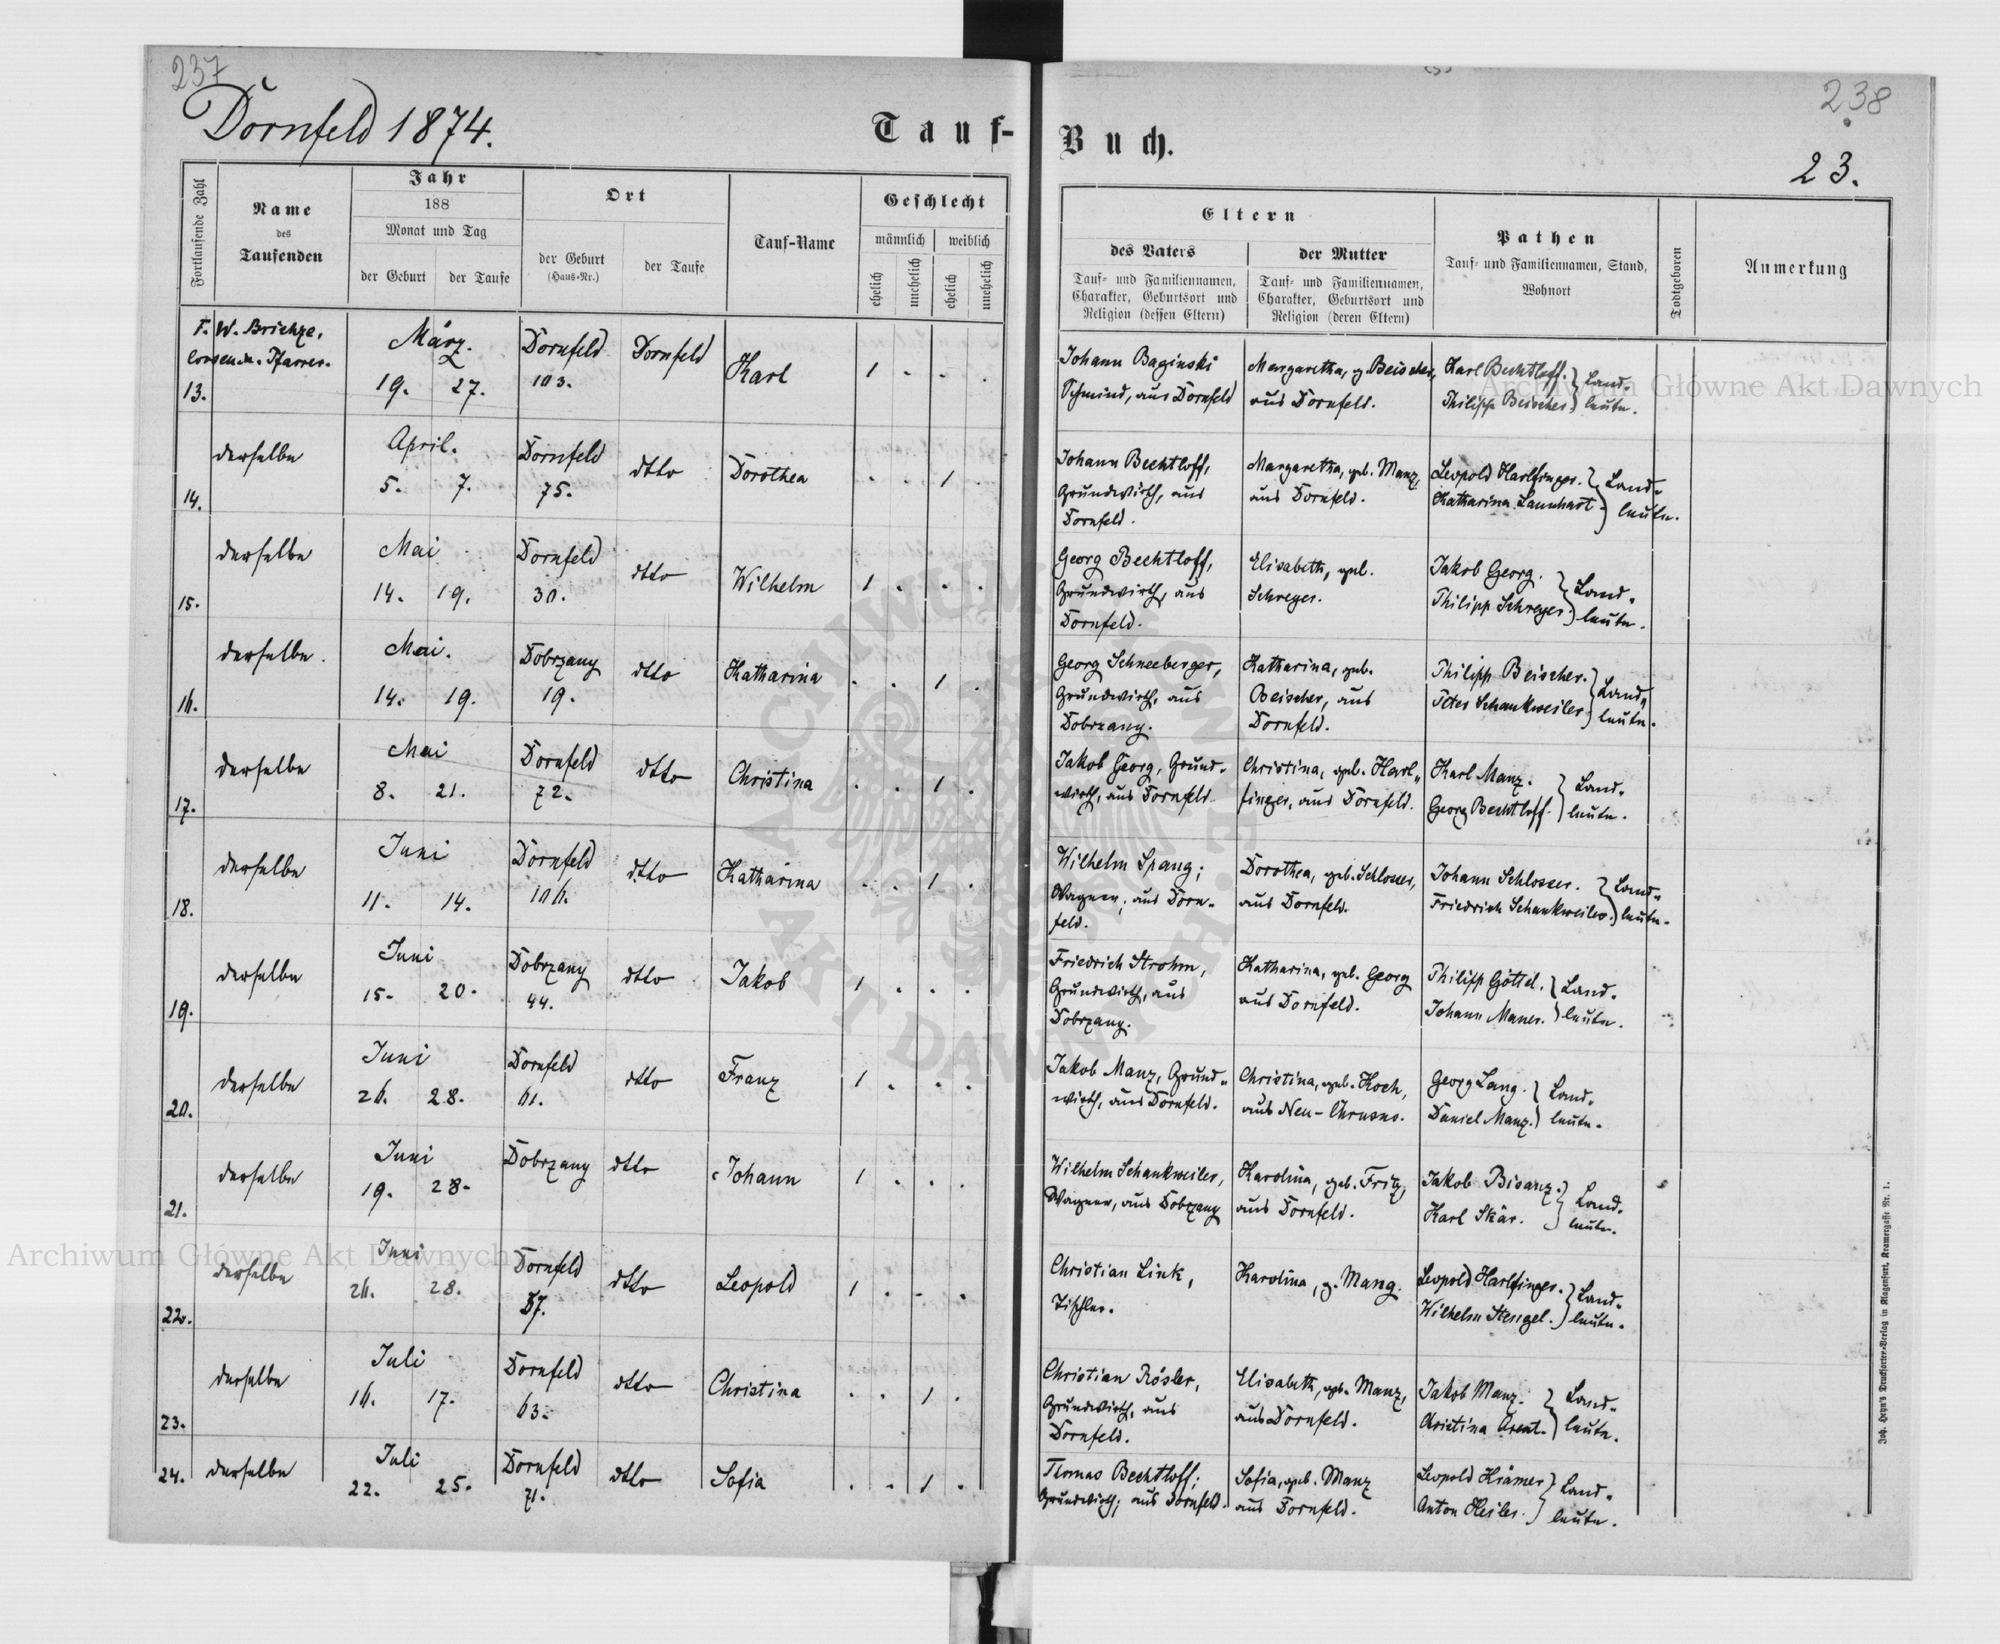 237
238
Dornfeld 1874.
Tauf-
Buch.
23.
Fortlaufende Zahl
Name
des
Taufenden
Jahr
188
Monat und Tag
der Geburt
der Taufe
Ort
der Geburt
(Haus-Nr.)
der Taufe
Tauf-Name
Geschlecht
männlich
weiblich
ehelich
unehelich
ehelich
unehelich
Eltern
des Vaters
Tauf- und Familiennamen,
Charakter, Geburtsort und
Religion (dessen Eltern)
der Mutter
Tauf- und Familiennamen,
Charakter, Geburtsort und
Religion (deren Eltern)
Pathen
Tauf- und Familiennamen, Stand,
Wohnort
Todtgeboren
Anmerkung
F. W.
Pfarrer.
13.
März.
19. 27.
Dornfeld
103.
Dornfeld
Karl
1 . . .
Johann Baginski
Schmied, aus Dornfeld
Margaretha, g. Beischer,
aus Dornfeld.
Karl Bechtloff.
Philipp Beischer.
Land-
leute.
14.
derselbe
April.
5. 7.
Dornfeld
75.
dtto
Dorothea
. . 1 .
Johann Bechtloff,
Grundwirth, aus
Dornfeld.
Margaretha, geb. Manz,
aus Dornfeld.
Leopold Harlfinger.
Katharina Lannhart.
Land-
leute.
15.
derselbe
Mai
14. 19.
Dornfeld
30.
dtto
Wilhelm
1 . . .
Georg Bechtloff,
Grundwirth, aus
Dornfeld.
Elisabeth, geb.
Schreyer.
Jakob Georg.
Philipp Schreyer.
Land-
leute.
16.
derselbe.
Mai.
14. 19.
Dobrzany
19.
dtto
Katharina
. . 1 .
Georg Schneeberger,
Grundwirth, aus
Dobrzany.
Katharina, geb.
Beischer, aus
Dornfeld.
Philipp Beischer.
Peter Schankweiler
Land-
leute.
17.
derselbe
Mai
8. 21.
Dornfeld
72.
dtto
Christina
. . 1 .
Jakob Georg, Grund-
wirth, aus Dornfeld
Christina, geb. Harl-
finger, aus Dornfeld.
Karl Manz.
Georg Bechtloff.
Land-
leute.
18.
derselbe
Juni
11. 14.
Dornfeld
106.
dtto
Katharina
. . 1 .
Wilhelm Spang;
Wagner; aus Dorn-
feld.
Dorothea, geb. Schlosser,
aus Dornfeld.
Johann Schlosser.
Friedrich Schankweiler.
Land-
leute.
19.
derselbe
Juni
15. 20.
Dobrzany
44.
dtto
Jakob
1 . . .
Friedrich Strohm,
Grundwirth, aus
Dobrzany.
Katharina, geb. Georg
aus Dornfeld.
Philipp Göttel.
Johann Maner.
Land-
leute.
20.
derselbe
Juni
26. 28.
Dornfeld
61.
dtto
Franz
1 . . .
Jakob Manz, Grund-
wirth, aus Dornfeld.
Christina, geb. Koch,
aus Neu-Chrusno.
Georg Lang.
Daniel Manz.
Land-
leute.
21.
derselbe
Juni
19. 28.
Dobrzany
dtto
Johann
1 . . .
Wilhelm Schankweiler,
Wagner, aus Dobrzany
Karolina, geb. Fritz,
aus Dornfeld.
Jakob Bisanz.
Karl Skär.
Land-
leute.
22.
derselbe
Juni
26. 28.
Dornfeld
57.
dtto
Leopold
1 . . .
Christian Link,
Tischler.
Karolina, g. Mang.
Leopold Harlfinger.
Wilhelm Stengel.
Land-
leute.
23.
derselbe
Juli
16. 17.
Dornfeld
63.
dtto
Christina
. . 1 .
Christian Rösler,
Grundwirth, aus
Dornfeld.
Elisabeth, geb. Manz,
aus Dornfeld.
Jakob Manz.
Christina
Land-
leute.
24.
derselbe
Juli
22. 25.
Dornfeld
71.
dtto
Sofia
. . 1 .
Thomas Bechtloff;
Grundwirth; aus Dornfeld.
Sofia, geb. Manz
aus Dornfeld.
Leopold Krämer
Anton Heiler.
Land-
leute.
Joh. Heyn's Drucksorten-Verlag in Klagenfurt, Kramergasse Nr. 1.
Archiwum Główne Akt Dawnych
Archiwum Główne Akt Dawnych
ARCHIWUM GŁÓWNE
AKT DAWNYCH